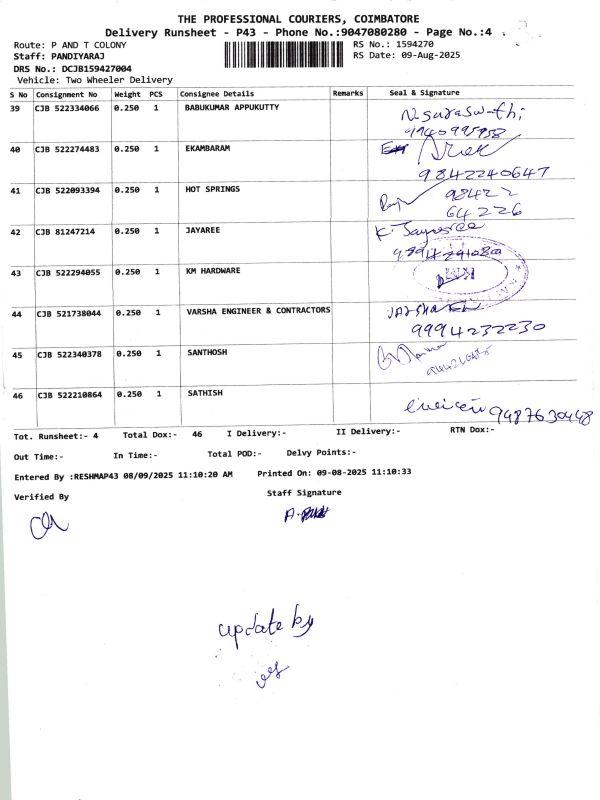 THE PROFESSIONAL COURIERS, COIMBATORE
Delivery Runsheet - P43 - Phone No.:9047080280 - Page No.:4
Route: P AND T COLONY
RS No.: 1594270
Staff: PANDIYARAJ
RS Date: 09-Aug-2025
DRS No.: DCJB159427004
Vehicle: Two Wheeler Delivery
S No Consignment No Weight PCS Consignee Details Remarks Seal & Signature
39 CJB 522334066 0.250 1 BABUKUMAR APPUKUTTY
9940995958
40 CJB 522274483 0.250 1 EKAMBARAM
9842240647
41 CJB 522093394 0.250 1 HOT SPRINGS
98422
64226
42 CJB 81247214 0.250 1 JAYAREE K. Jayasree
43 CJB 522294055 0.250 1 KM HARDWARE
44 CJB 521738044 0.250 1 VARSHA ENGINEER & CONTRACTORS
9994232230
45 CJB 522340378 0.250 1 SANTHOSH
46 CJB 522210864 0.250 1 SATHISH
9487630448
Tot. Runsheet:- 4 Total Dox:- 46 I Delivery:- II Delivery:- RTN Dox:-
Out Time:- In Time:- Total POD:- Delvy Points:-
Entered By :RESHMAP43 08/09/2025 11:10:20 AM Printed On: 09-08-2025 11:10:33
Verified By Staff Signature
update by